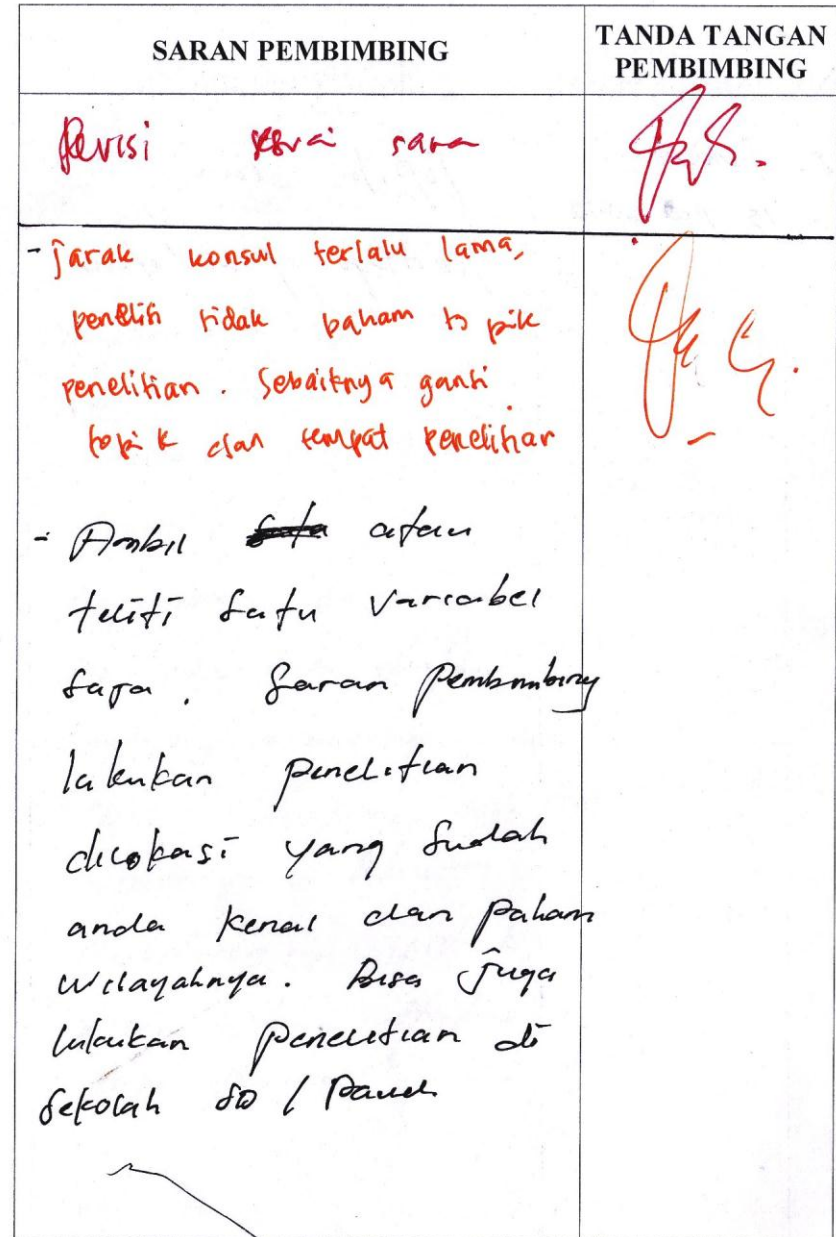 SARAN PEMBIMBING
TANDA TANGAN
PEMBIMBING
Revisi sesuai saran
- jarak konsul terlalu lama,
peneliti tidak paham topik
penelitian. Sebaiknya ganti
topik dan tempat penelitian
- Ambil atau
teliti satu variabel
saja. Saran Pembimbing
lakukan penelitian
dilokasi yang sudah
anda kenal dan paham
wilayahnya. Bisa juga
lakukan penelitian di
sekolah SD / Paud